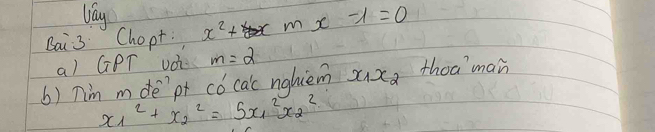 Vây
Bài 3: Chopt: x² + m x - 1 = 0
a) GPT với m = 2
b) Tìm m để pt có các nghiệm x₁x₂ thoả mãn
x₁² + x₂² = 5x₁²x₂²